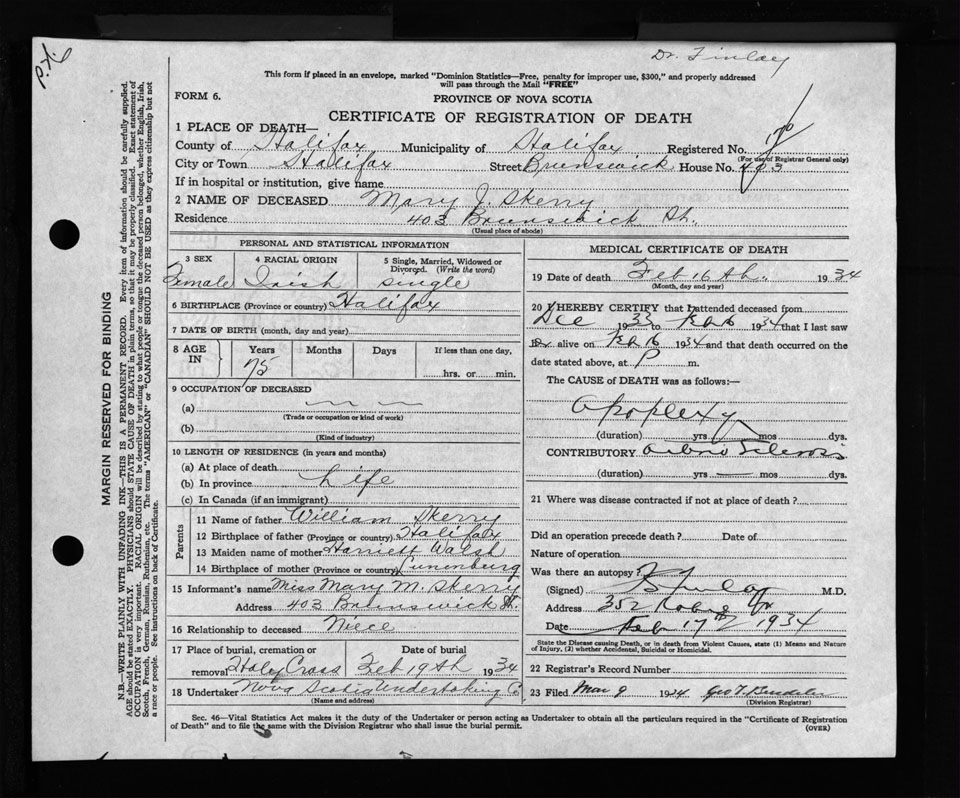 Dr. Finlay
This form if placed in an envelope, marked "Dominion Statistics—Free, penalty for improper use, $300," and properly addressed
will pass through the Mail "FREE"
FORM 6.
PROVINCE OF NOVA SCOTIA
CERTIFICATE OF REGISTRATION OF DEATH
1 PLACE OF DEATH—
County of Halifax Municipality of Halifax Registered No.
(For use of Registrar General only)
City or Town Halifax Street Brunswick House No. 403
If in hospital or institution, give name
2 NAME OF DECEASED Mary J. Skerry
Residence 403 Brunswick St.
(Usual place of abode)
PERSONAL AND STATISTICAL INFORMATION
3 SEX Female
4 RACIAL ORIGIN Irish
5 Single, Married, Widowed or Divorced. (Write the word) single
6 BIRTHPLACE (Province or country) Halifax
7 DATE OF BIRTH (month, day and year)
8 AGE IN Years 75 Months Days If less than one day, hrs. or min.
9 OCCUPATION OF DECEASED
(a)
(Trade or occupation or kind of work)
(b)
(Kind of industry)
10 LENGTH OF RESIDENCE (in years and months)
(a) At place of death
(b) In province Life
(c) In Canada (if an immigrant)
Parents
11 Name of father William Skerry
12 Birthplace of father (Province or country) Halifax
13 Maiden name of mother Harriett Walsh
14 Birthplace of mother (Province or country) Lunenburg
15 Informant's name Miss Mary M. Skerry
Address 403 Brunswick St.
16 Relationship to deceased Niece
17 Place of burial, cremation or removal Holy Cross
Date of burial Feb 19th 1934
18 Undertaker Nova Scotia Undertaking Co
(Name and address)
MEDICAL CERTIFICATE OF DEATH
19 Date of death Feb 16th. 1934
(Month, day and year)
20 I HEREBY CERTIFY that I attended deceased from
Dec 1933 to Feb 16 1934 that I last saw
alive on Feb 16 1934 and that death occurred on the
date stated above, at P m.
The CAUSE of DEATH was as follows:—
Apoplexy
(duration) yrs mos dys.
CONTRIBUTORY
(duration) yrs mos dys.
21 Where was disease contracted if not at place of death?
Did an operation precede death? Date of
Nature of operation
Was there an autopsy?
(Signed) Finlay M.D.
Address 352
Date Feb 17th 1934
State the Disease causing Death, or in death from Violent Causes, state (1) Means and Nature
of Injury, (2) whether Accidental, Suicidal or Homicidal.
22 Registrar's Record Number
23 Filed Mar 9 1934 Geo T.
(Division Registrar)
Sec. 46—Vital Statistics Act makes it the duty of the Undertaker or person acting as Undertaker to obtain all the particulars required in the "Certificate of Registration
of Death" and to file the same with the Division Registrar who shall issue the burial permit.
(OVER)
MARGIN RESERVED FOR BINDING
N.B.—WRITE PLAINLY WITH UNFADING INK—THIS IS A PERMANENT RECORD. Every item of information should be carefully supplied.
AGE should be stated EXACTLY. PHYSICIANS should STATE CAUSE OF DEATH in plain terms, so that it may be properly classified. Exact statement of
OCCUPATION is very important. RACIAL ORIGIN will be described by stating to what people or tongue the deceased person belonged, whether English, Irish,
Scotch, French, German, Russian, Ruthenian, etc. The terms "AMERICAN" or "CANADIAN" SHOULD NOT BE USED as they express citizenship but not
a race or people. See instructions on back of Certificate.